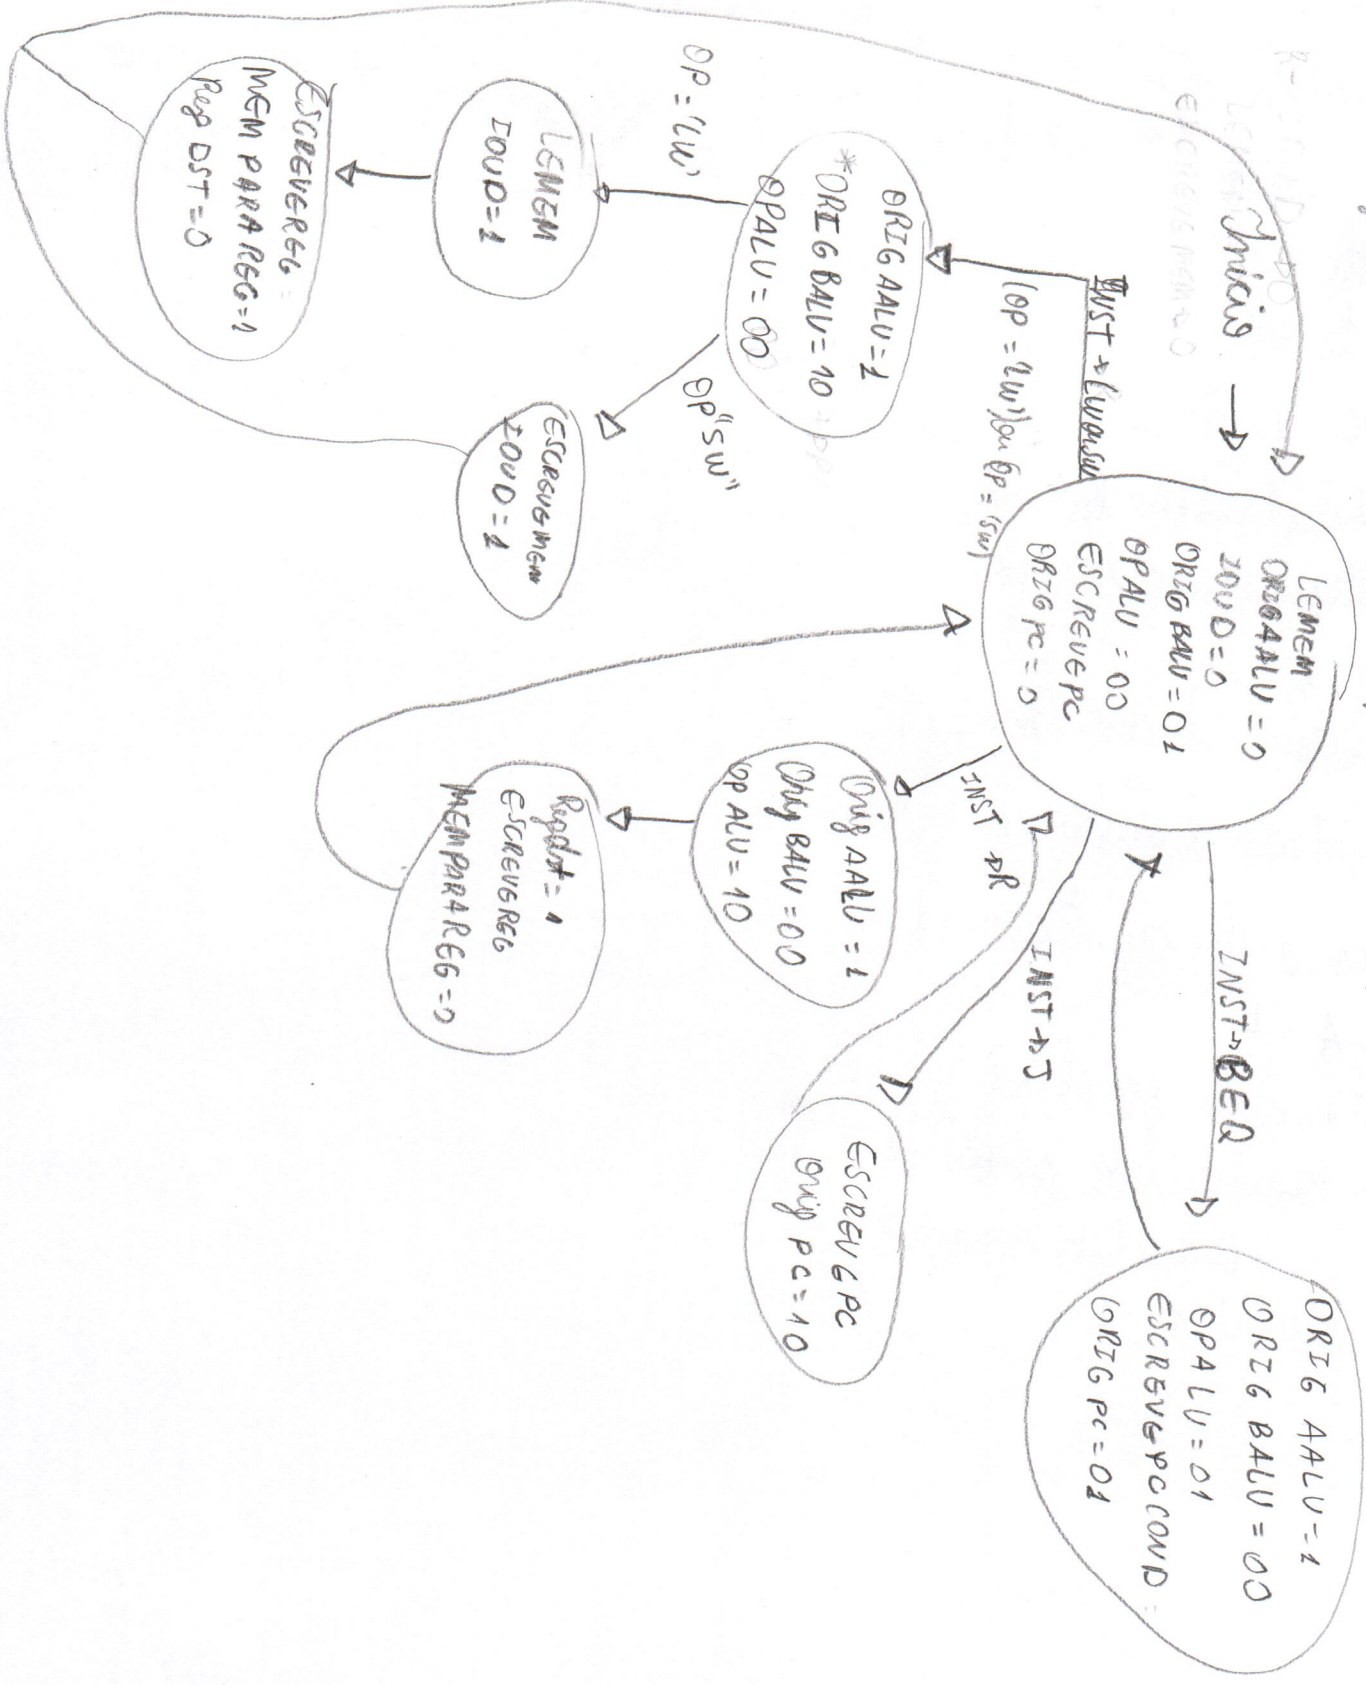 Início
LEMEM
ORIGAALU = 0
IOUD = 0
ORIGBALU = 01
OPALU = 00
ESCREVEPC
ORIGPC = 0
INST → LWOUSW
(OP = 'LW') ou (OP = 'SW')
ORIGAALU = 1
*ORIGBALU = 10
OPALU = 00
OP = 'LW'
OP "SW"
LEMEM
IOUD = 1
ESCREVEREG =
MEMPARAREG = 1
Reg DST = 0
ESCREVEMEM
IOUD = 1
INST → R
Orig AALU = 1
Orig BALU = 00
OP ALU = 10
Regdst = 1
ESCREVEREG
MEMPARAREG = 0
INST → J
ESCREVEPC
Orig PC = 10
INST → BEQ
ORIG AALU = 1
ORIG BALU = 00
OPALU = 01
ESCREVEPCCOND =
ORIGPC = 01